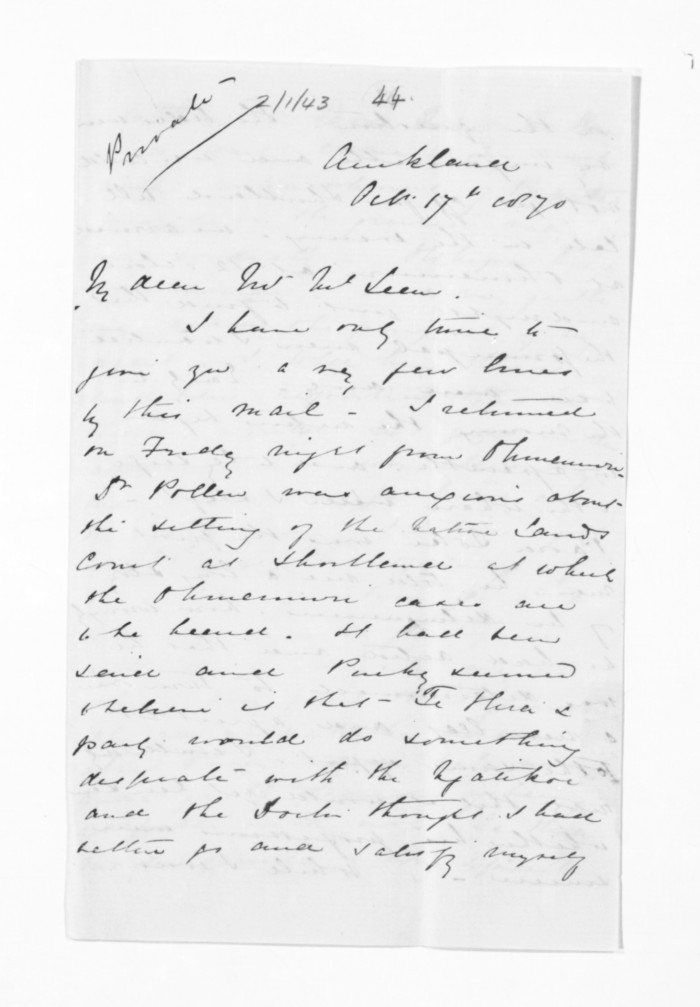 Private
2/1/43 44.
Auckland
Octr. 17th 1870
My dear Mr McLean.
I have only time to
give you a very few lines
by this mail - I returned
on Friday night from Ohinemuri.
Dr Pollen was anxious about
the sitting of the Native Lands
Court at Shortland at which
the Ohinemuri cases are
to be heard. It had been
said and Puckey seemed
to believe it that Te Hira's
party would do something
desperate with the Ngatikoi
and the Doctor thought I had
better go and satisfy myself